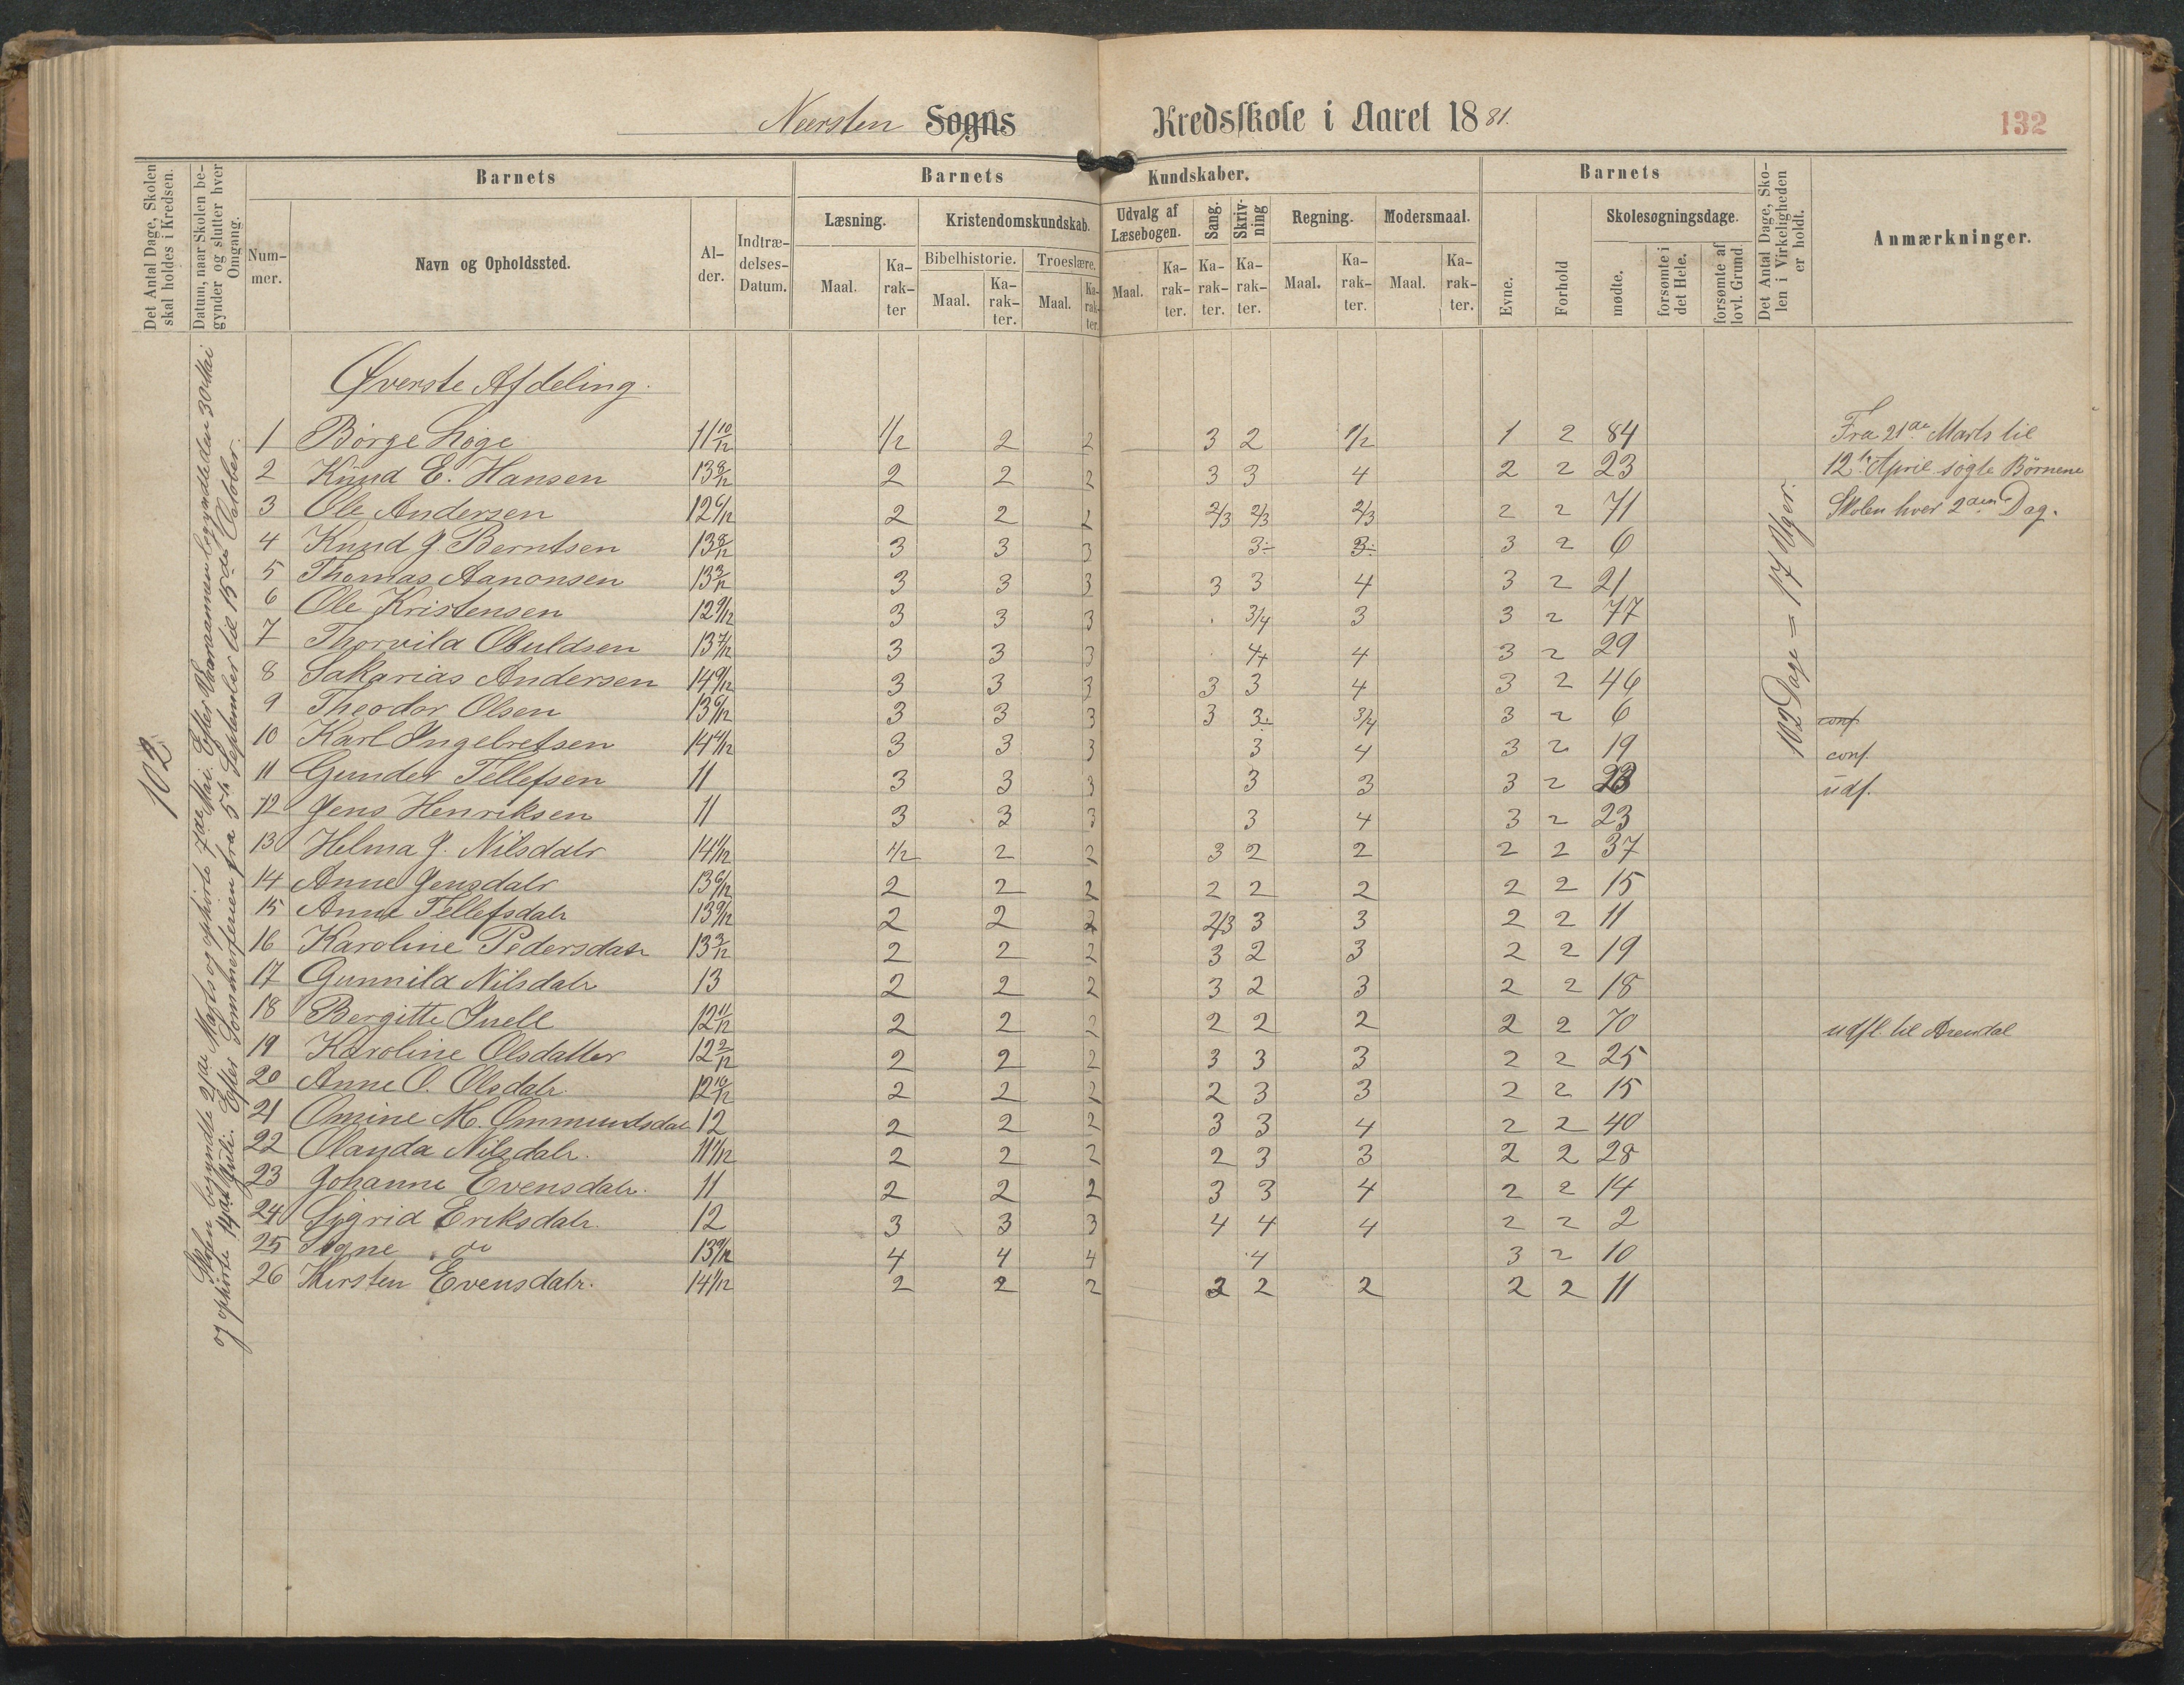 Næersten Sogns Kredsskole i Aaret 1881.
132
Det Antal Dage, Skolen skal holdes i Kredsen.
Datum, naar Skolen begynder og slutter hver Omgang.
Barnets
Nummer.
Navn og Opholdssted.
Alder.
Indtrædelses-Datum.
Barnets Kundskaber.
Læsning.
Maal.
Karakter
Kristendomskundskab.
Bibelhistorie.
Maal.
Karakter.
Troeslære.
Maal.
Karakter.
Udvalg af Læsebogen.
Maal.
Karakter.
Sang.
Karakter.
Skrivning
Karakter.
Regning.
Maal.
Karakter.
Modersmaal.
Maal.
Karakter.
Barnets
Evne.
Forhold
Skolesøgningsdage.
mødte.
forsømte i det Hele.
forsømte af lovl. Grund.
Det Antal Dage, Skolen i Virkeligheden er holdt.
Anmærkninger.
102
Skolen begyndte 2den Marts og ophørte 7de Mai. Efter Vaaraannen begyndte den 30 Mai
og ophørte 14de Juli. Efter Sommerferien fra 5te September til 15de October.
Øverste Afdeling.
1 Børge Løge 11 10/12 1/2 2 2 3 2 1/2 1 2 84 Fra 21de Marts til
2 Knud E. Hansen 13 8/12 2 2 2 3 3 4 2 2 23 12te April søgte Børnene
3 Ole Andersen 12 6/12 2 2 2 2/3 2/3 2/3 2 2 71 Skolen hver 2den Dag.
4 Knud J. Berntsen 13 8/12 3 3 3 3÷ 3÷ 3 2 6
5 Thomas Aanonsen 13 3/12 3 3 3 3 3 4 3 2 21
6 Ole Kristensen 12 9/12 3 3 3 3/4 3 3 2 77
7 Thorvild Obuldsen 13 7/12 3 3 3 4+ 4 3 2 29
8 Sakarias Andersen 14 9/12 3 3 3 3 3 4 3 2 46
9 Theodor Olsen 13 6/12 3 3 3 3 3÷ 3/4 3 2 6 conf
10 Karl Ingebretsen 14 4/12 3 3 3 3 4 3 2 19 conf.
11 Gunder Tellefsen 11 3 3 3 3 3 3 2 23 udf.
12 Jens Henriksen 11 3 3 3 3 4 3 2 23
13 Helma J. Nilsdatr 14 1/12 1/2 2 2 3 2 2 2 2 37
14 Anne Jensdatr 13 6/12 2 2 2 2 2 2 2 2 15
15 Anne Tellefsdatr 13 9/12 2 2 2 2/3 3 3 2 2 11
16 Karoline Pedersdatr 13 3/12 2 2 2 3 2 3 2 2 19
17 Gunnild Nilsdatr 13 2 2 2 3 2 3 2 2 18
18 Bergitte Juell 12 11/12 2 2 2 2 2 2 2 2 70 udfl. til Arendal
19 Karoline Olsdatter 12 2/12 2 2 2 3 3 3 2 2 25
20 Anne O. Olsdatr. 12 10/12 2 2 2 2 3 3 2 2 15
21 Omine M. Ommundsdatr 12 2 2 2 3 3 4 2 2 40
22 Olauda Nilsdatr. 11 1/12 2 2 2 2 3 3 2 2 28
23 Johanne Evensdatr. 11 2 2 2 3 3 4 2 2 14
24 Sigrid Eriksdatr. 12 3 3 3 4 4 4 2 2 2
25 Signe do 13 9/12 4 4 4 4 3 2 10
26 Kirsten Evensdatr. 14 1/12 2 2 2 2 2 2 2 2 11
102 Dage = 17 Uger.